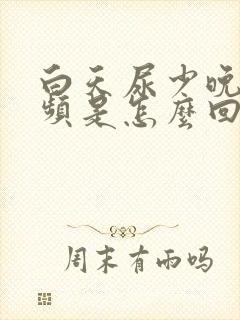 白天尿少晚
频是怎麼回
周末有雨吗